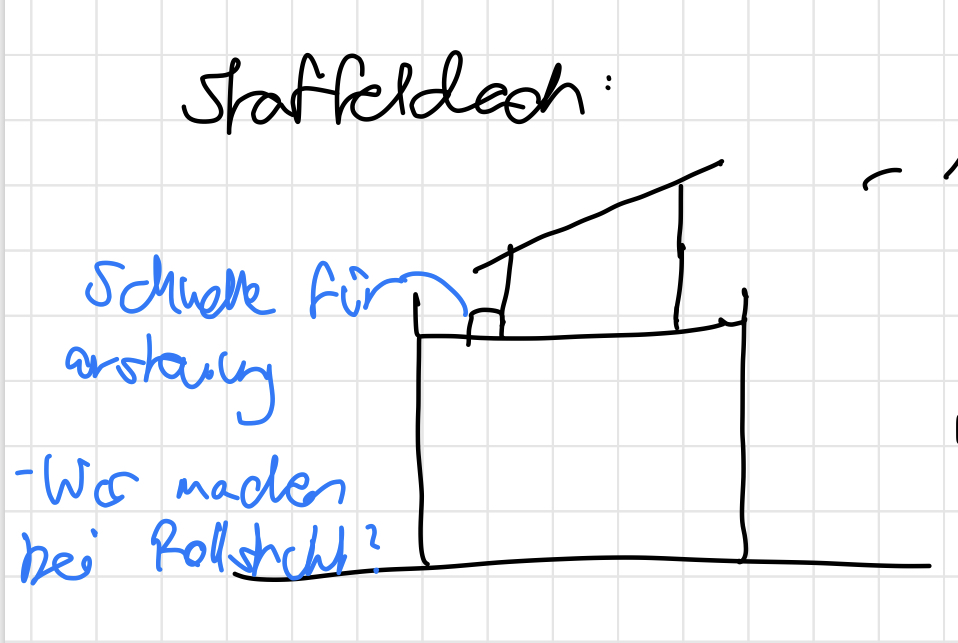 Staffeldach:
Schwelle für
anstauung
- Was machen
bei Rollstuhl?